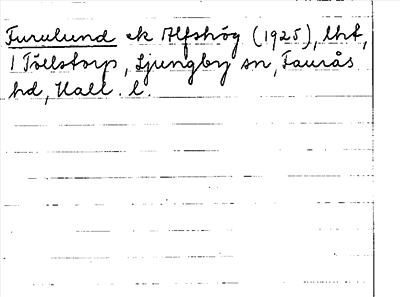 Furulund ek Alfshög (1925), lht,
1 Töllstorp, Ljungby sn, Faurås
hd, Hall. l.